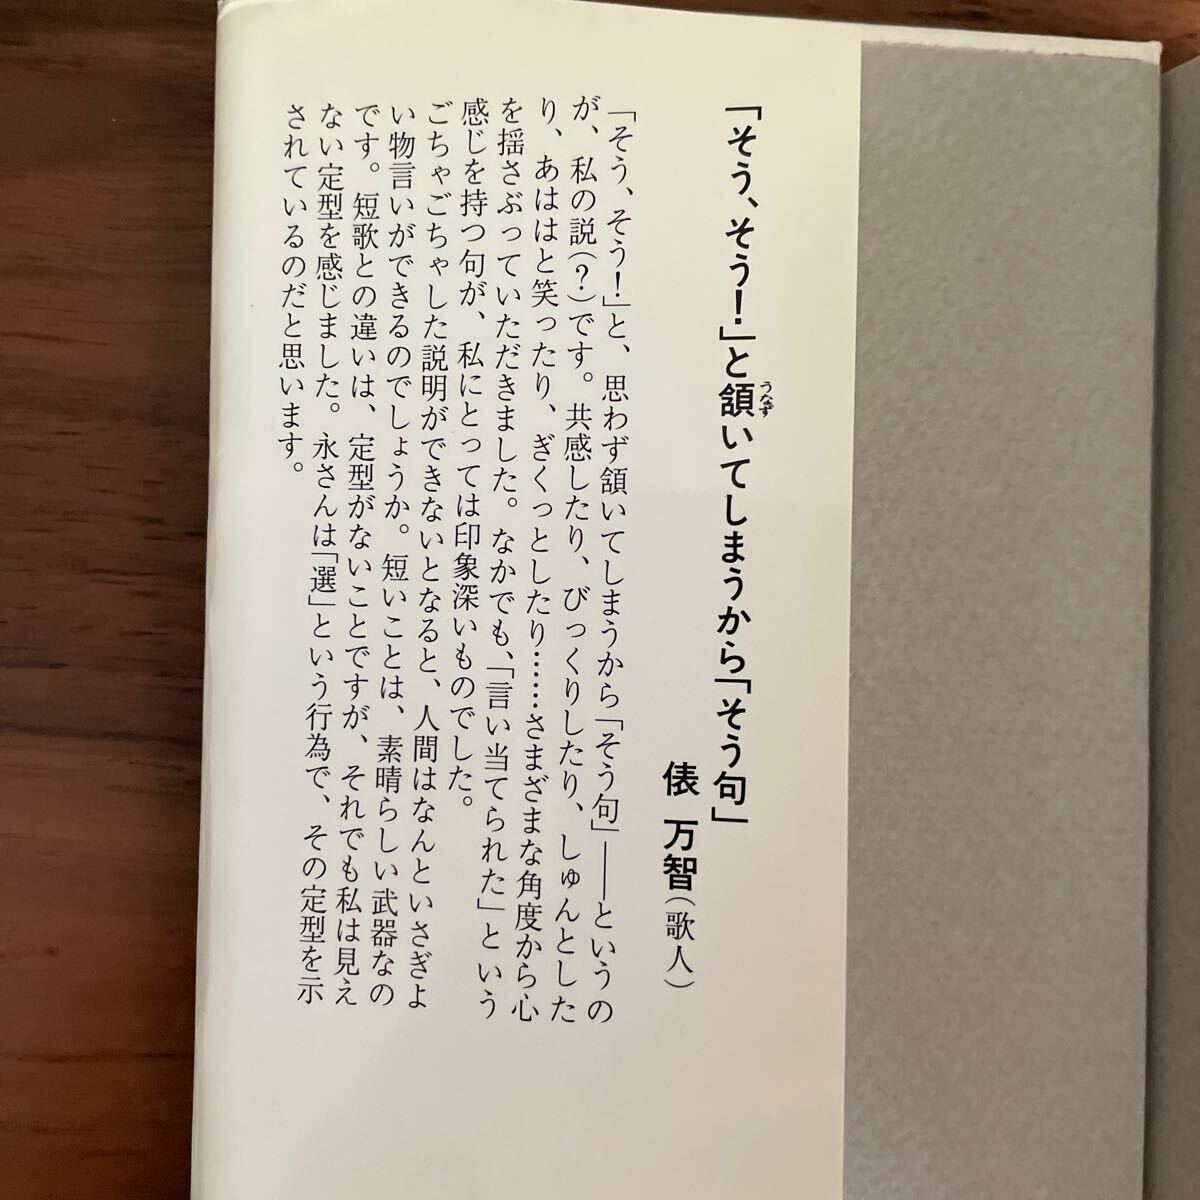 「そう、そう！」と頷いてしまうから「そう句」
うなず
俵 万智（歌人）
「そう、そう！」と、思わず頷いてしまうから「そう句」──というの
が、私の説（？）です。共感したり、びっくりしたり、しゅんとした
り、あははと笑ったり、ぎくっとしたり……さまざまな角度から心
を揺さぶっていただきました。なかでも、「言い当てられた」という
感じを持つ句が、私にとっては印象深いものでした。
ごちゃごちゃした説明ができないとなると、人間はなんといさぎよ
い物言いができるのでしょうか。短いことは、素晴らしい武器なの
です。短歌との違いは、定型がないことですが、それでも私は見え
ない定型を感じました。永さんは「選」という行為で、その定型を示
されているのだと思います。